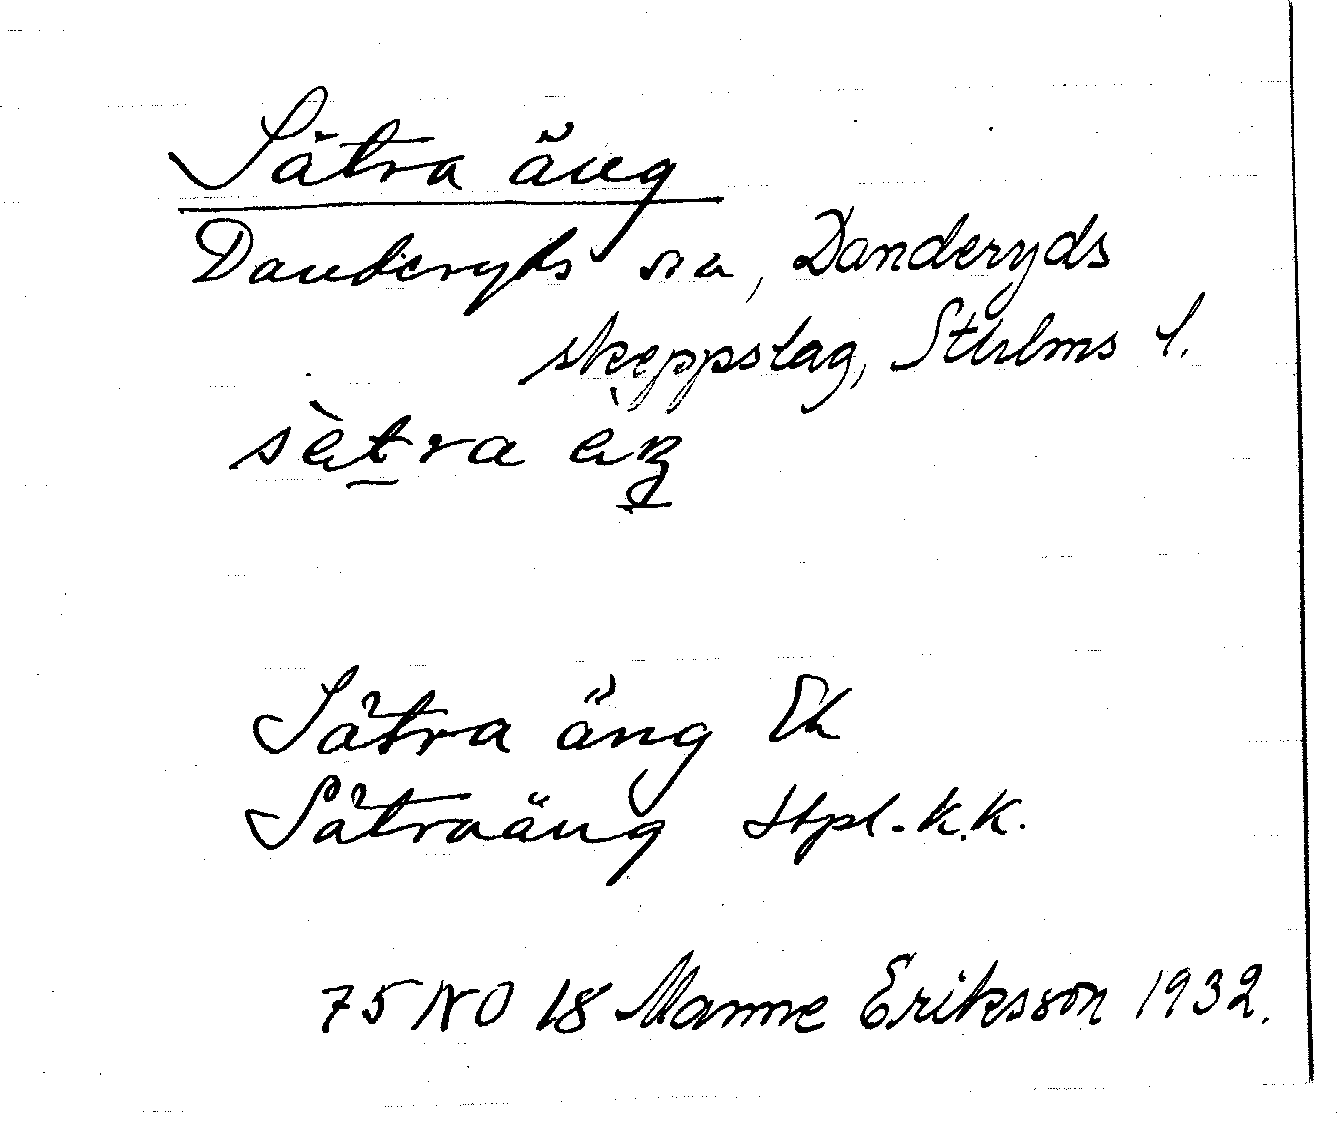 Sätra äng
Danderyds sn, Danderyds
skeppslag, Sthlms l.
sètra èŋ
Sätra äng Ek
Sätraäng Hpl.-k.k.
75 NO 18 Manne Eriksson 1932.